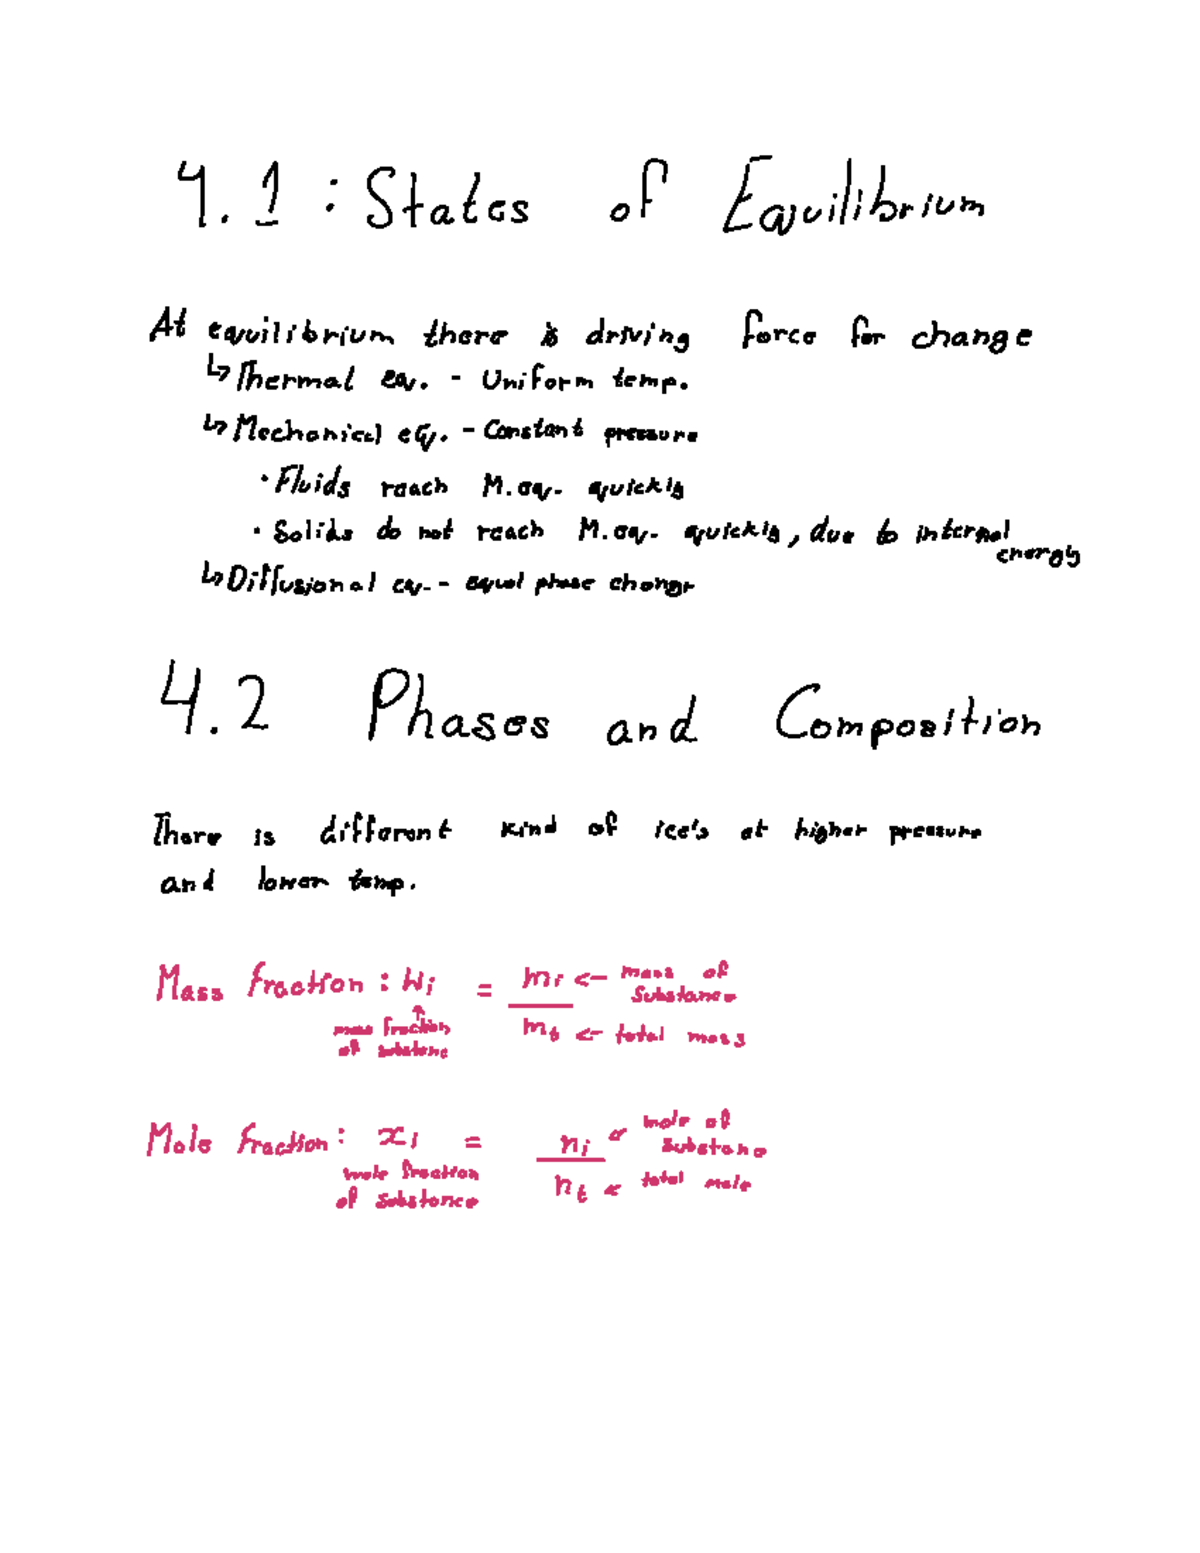 4.1 : States of Equilibrium
At equilibrium there is driving force for change
↳ Thermal eq. - Uniform temp.
↳ Mechanical eq. - Constant pressure
· Fluids reach M.eq. quickly
· Solids do not reach M.eq. quickly, due to internal
energy
↳ Diffusional eq. - equal phase change
4.2 Phases and Composition
There is different kind of ice's at higher pressure
and lower temp.
Mass fraction : Wi = mi <- mass of
substance
mass fraction
of substance
mt <- total mass
Mole fraction : xi = ni < mole of
substance
mole fraction
of substance
nt < total mole